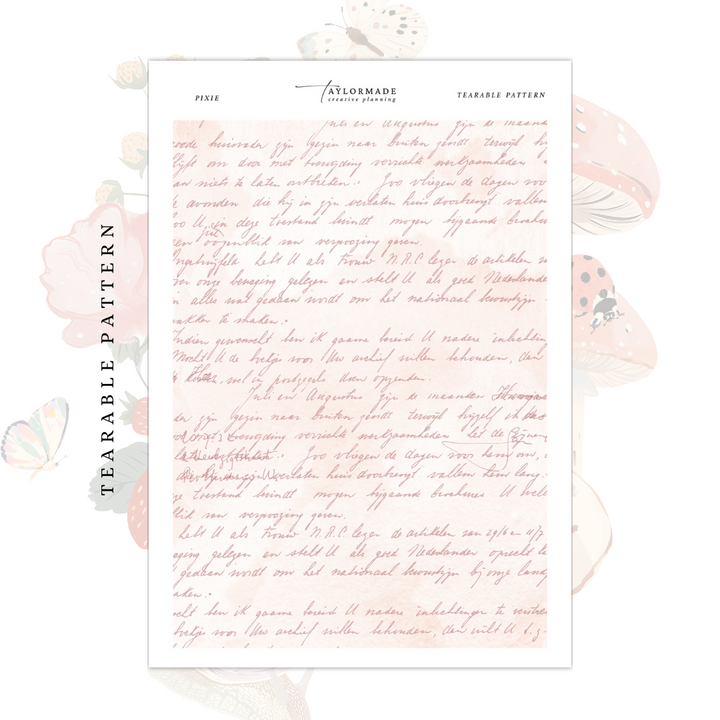 PIXIE
TAYLORMADE
creative planning
TEARABLE PATTERN
TEARABLE PATTERN
Juli en Augustus zijn de maande
zijn gezin naar buiten zendt terwijl hij
om door met toewijding verrichte werkzaamheden
niets te laten ontbreken. Zoo vliegen de dagen voo
avonden die hij in zijn verlaten huis doorbrengt vallen
U in deze toestand brindt mogen bijgaande brochur
oogenblid van verpoozing geven.
hebt U als trouw N.R.C. lezer de artikelen v
onze beweging gelezen en stelt U als goed Nederlande
alles wat gedaan wordt om het nationaal bewustzijn
te maken.
gewenscht ben ik gaarne bereid U nadere inlichtin
Mocht U de boekjes voor Uw archief willen behouden, dan
wel in postzegels doen opzenden.
Juli en Augustus zijn de maanden
zijn gezin naar buiten zendt terwijl hijzelf
toewijding verrichte werkzaamheden het de
Zoo vliegen de dagen voor hem om,
verlaten huis doorbrengt vallen hem lang.
toestand brindt mogen bijgaande brochures U wele
van verpoozing geven.
hebt U als trouw N.R.C. lezer de artikelen van 29/6 en 11/7
gelezen en stelt U als goed Nederlander oprecht
gedaan wordt om het nationaal bewustzijn bij onze land
ben ik gaarne bereid U nadere inlichtingen te verstre
boekjes voor Uw archief willen behouden, dan wilt U